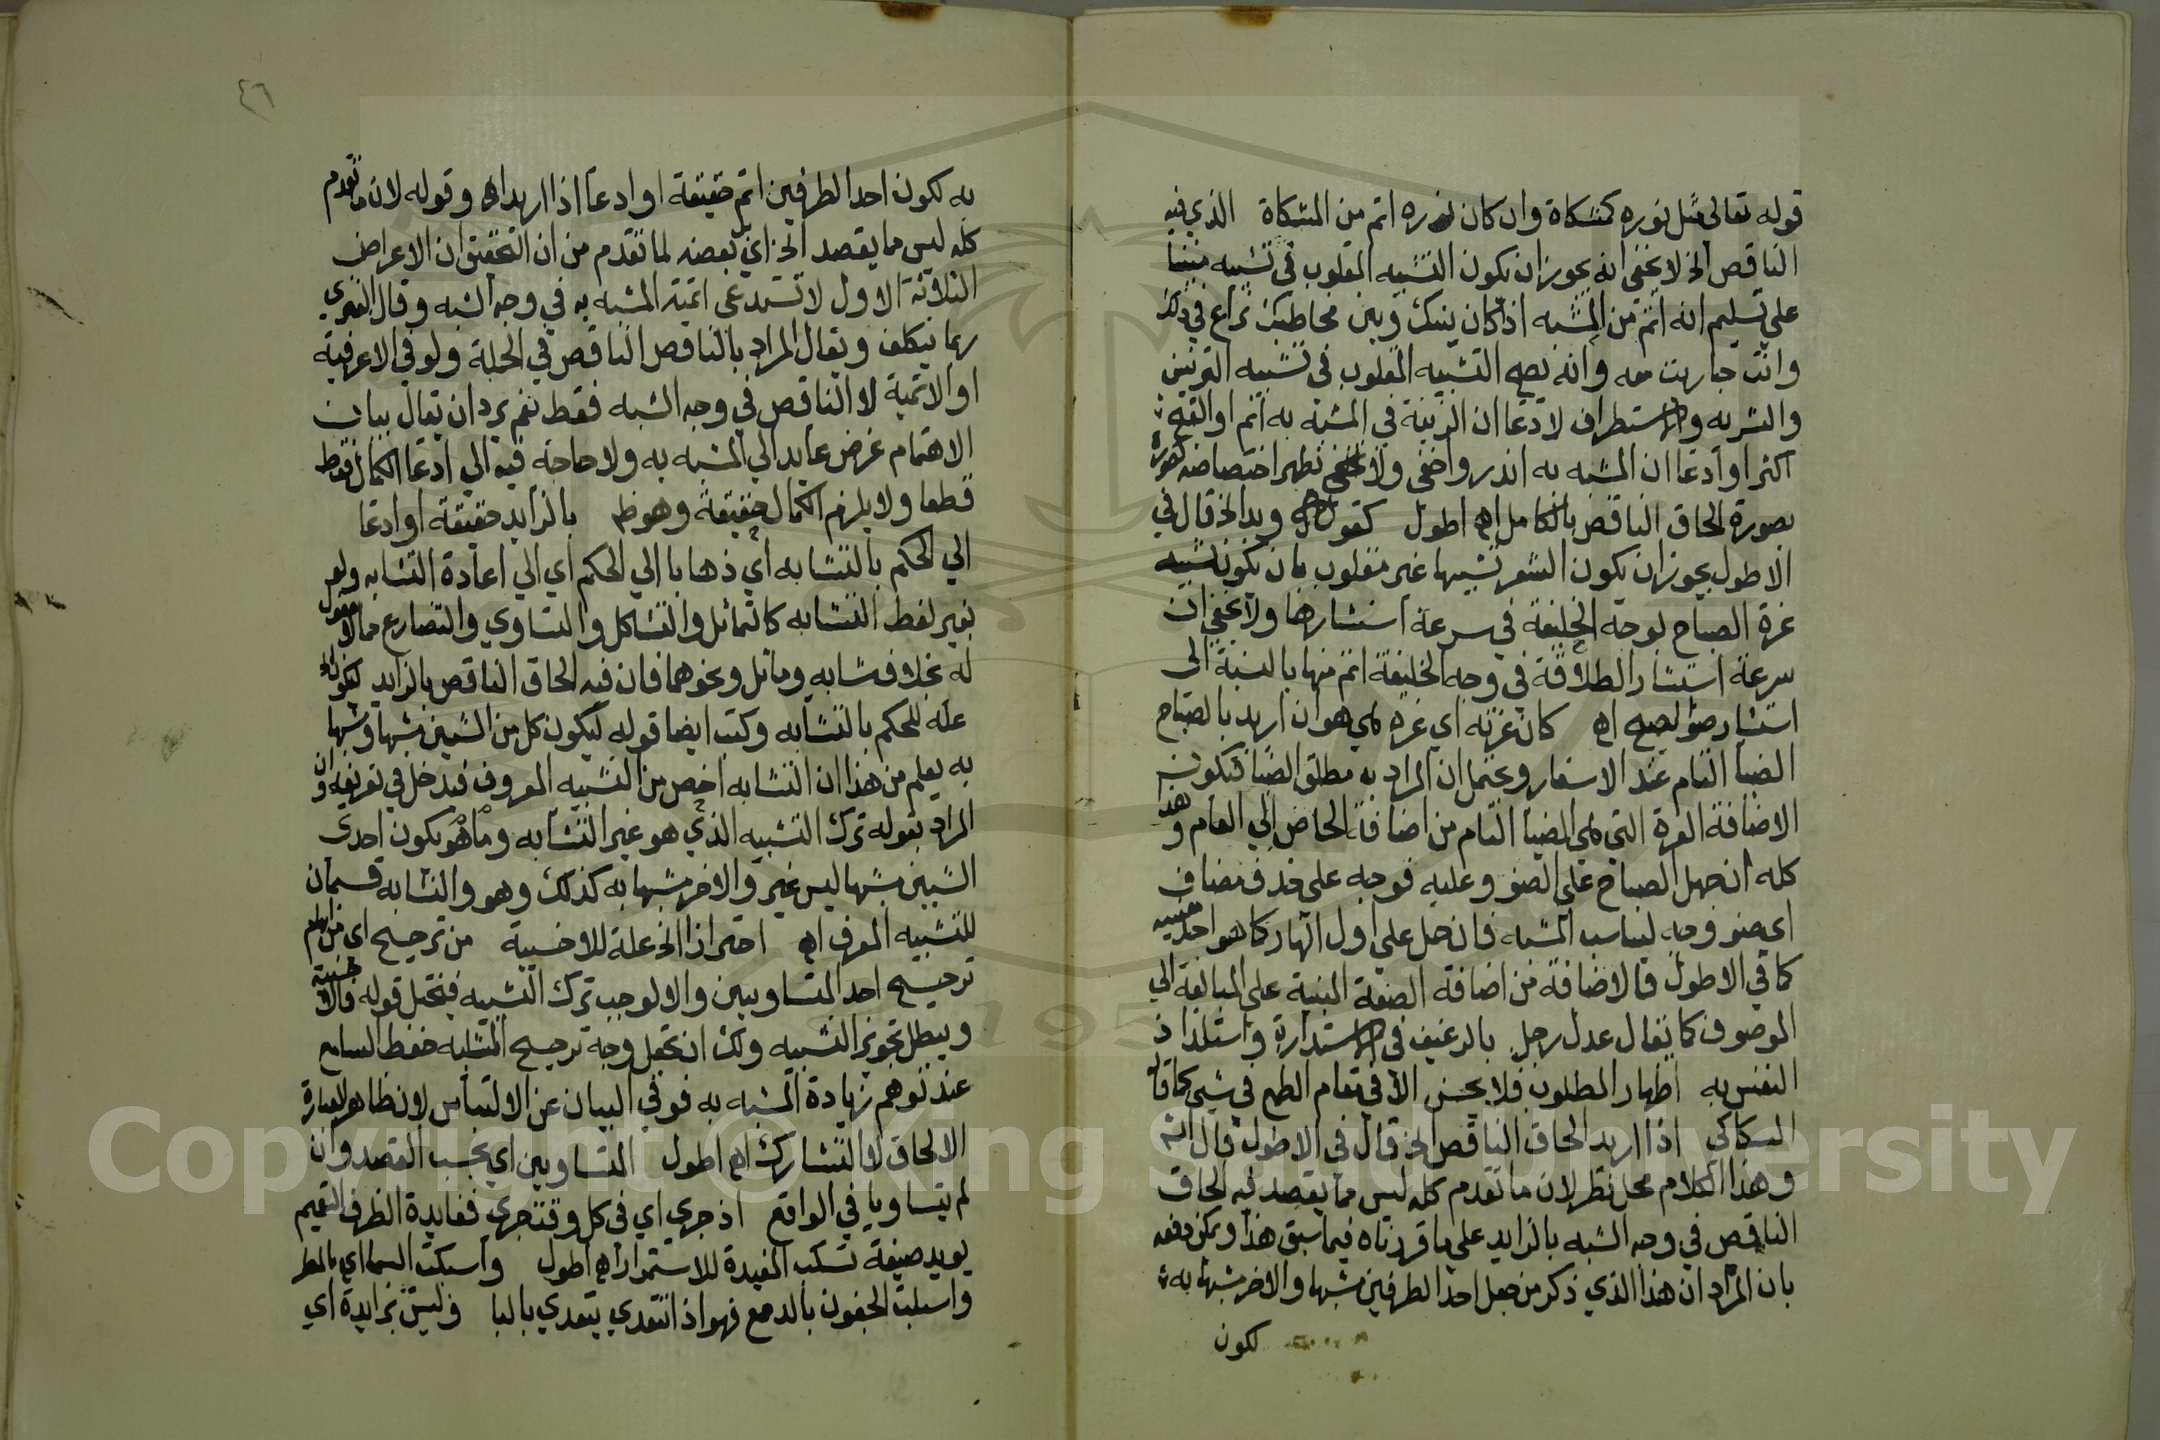 قوله تعالى مثل نوره كمشكاة وان كان نوره اتم من المشكاة الذي فيه
الناقص الخ لا يخفى انه يجوز ان يكون التشبيه المقلوب في تشبيه مبنيا
على تسليم انه اتم من المشبه اذ كان بينك وبين مخاطبك نزاع في ذلك
وانت جاريت معه وانه يصح التشبيه المقلوب في تشبيه التزيين
والتشويه والاستطراف لادعا ان الزينة في المشبه به اتم او القبح
اكثر او ادعا ان المشبه به اندر واخفى ولا يخفى نظهر اختصاصه
بصورة الحاق الناقص بالكامل اه اطول كقوله وبدا الخ قال في
الاطول يجوز ان يكون الشعر تشبيها غير مقلوب بان يكون تشبيه
غرة الصباح بوجه الخليفة في سرعة استشارها ولا يخفى ان
سرعة استشار الطلاقة في وجه الخليفة اتم منها بالنسبة الى
استشار ضو الصبح اه كان غرته اي غرة هي هو ان اريد بالصباح
الضيا التام عند الاسفار ويحتمل ان المراد به مطلق الضيا فتكون
الاضافة الغرة التي هي الضيا التام من اضافة الخاص الى العام وهذا
كله ان حمل الصباح على الضو وعليه فوجه على حذف مضاف
اي ضو وجه ليناسب المشبه فان حمل على اول النهار كما هو احد معنييه
كما في الاطول فالاضافة من اضافة الصفة المبنية على المبالغة الى
الموصوف كما يقال عدل رجل بالرغيف في الاستدارة واستلذاذ
النفس به اظهار المطلوب فلا يحسن الا في مقام الطمع في شي كما قاله
السكاكي اذا اريد الحاق الناقص الخ قال في الاطول قال الشم
وهذا الكلام محل نظر لان ما تقدم كله ليس مما يقصد فيه الحاق
الناقص في وجه الشبه بالزايد على ما قررناه فيما سبق هذا ويمكن دفعه
بان المراد ان هذا الذي ذكر من جعل احد الطرفين مشبها والاخر مشبها به
لكون
٤٦
به لكون احد الطرفين اتم حقيقة او ادعا اذا اريد اه وقوله لان ما تقدم
كله ليس مما يقصد الخ اي بل بعضه لما تقدم من ان التحقيق ان الاعراض
الثلاثة الاول لا تستدعي اتمية المشبه به في وجه الشبه وقال الفنري
ربما يتكلف ويقال المراد بالناقص الناقص في الجملة ولو في الاعرفية
او الاتمية لا الناقص في وجه الشبه فقط نعم يرد ان يقال بيان
الاهتمام غرض عايد الى المشبه به ولا حاجة فيه الى ادعا الكمال فقط
قطعا ولا يلزم الكمال حقيقة وهو ظ بالزايد حقيقة او ادعا
الى الحكم بالتشابه اي ذهابا الى الحكم اي الى اعادة التشابه ولو
بغير لفظ التشابه كالتماثل والتشاكل والتساوي والتضارع مما لا مفعول
له بخلاف شابه وماثل ونحوهما فان فيه الحاق الناقص بالزايد
علة للحكم بالتشابه وكتب ايضا قوله ليكون كل من الشيين مشبها ومشبها
به يعلم من هذا ان التشابه اخص من التشبيه المعروف فيدخل في تعريفه وان
المراد بقوله ترك التشبيه الذي هو غير التشابه وما هو يكون احدى
الشيين مشبها ليس غير والاخر مشبها به كذلك وهو والتشابه قسمان
للتشبيه المعرف اه احترازا الخ علة للاحسنية من ترجيح اي من
ترجيح احد المتساويين والا لوجب ترك التشبيه فيختل قوله فالاحسن
ويبطل تجويز التشبيه ولك ان تجعل وجه ترجيح التشابه حفظ السامع
عند توهم زيادة المشبه به فو في البيان عن الالتباس لان ظاهر العبارة
الالحاق لا التشارك اه اطول المتساويين اي بحسب القصد وان
لم يتساويا في الواقع اذ جرى اي في كل وقت جرى ففايدة الظرف التعميم
يويد صيغة تسكب المفيدة للاستمرار اه اطول واسبكت السما اي بالمطر
واسبلت الجفون بالدمع فهو اذا تعدي يتعدى بالبا وليس بزايدة اي